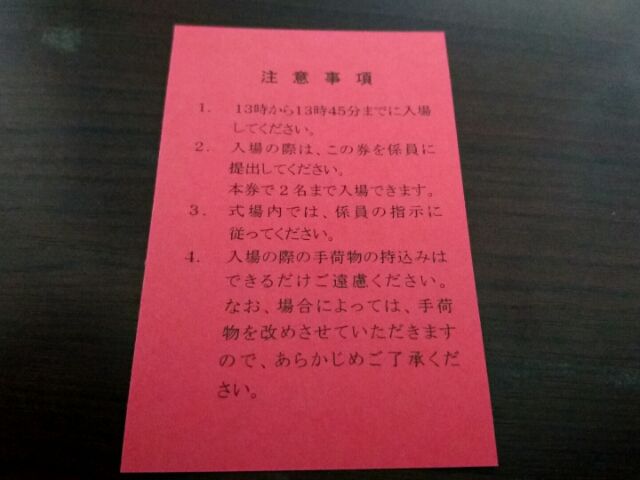 注意事項
1. 13時から13時45分までに入場
してください。
2. 入場の際は、この券を係員に
提出してください。
本券で2名まで入場できます。
3. 式場内では、係員の指示に
従ってください。
4. 入場の際の手荷物の持込みは
できるだけご遠慮ください。
なお、場合によっては、手荷
物を改めさせていただきます
ので、あらかじめご了承くだ
さい。